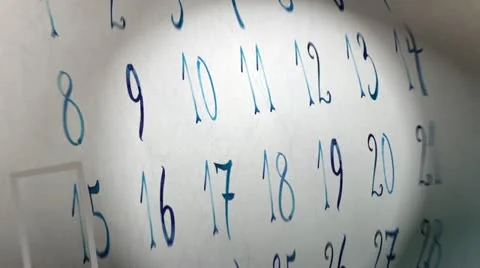 1 2 3
8 9 10 11 12 13 14
15 16 17 18 19 20 21
25 26 27 28